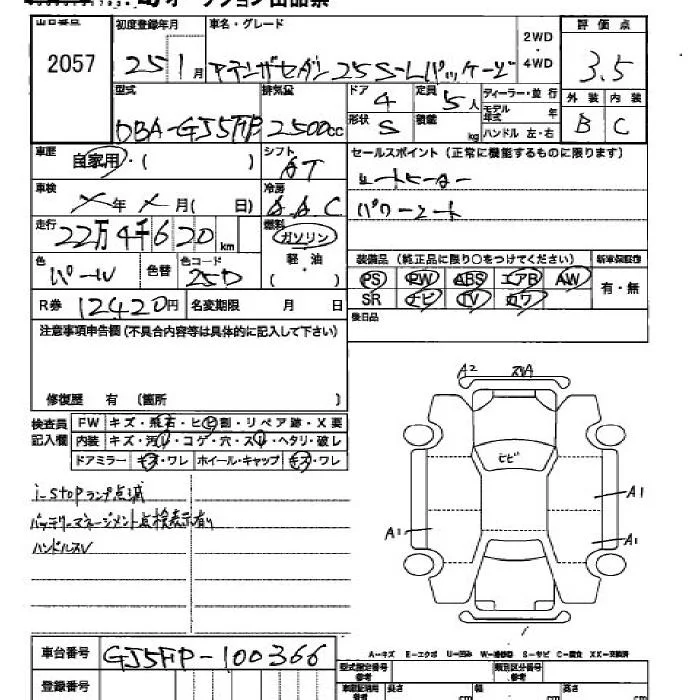 オークション出品票
出品番号
2057
初度登録年月
25 1月
車名・グレード
アテンザセダン 25S-Lパッケージ
2WD・4WD
評価点
3.5
外装 内装
B C
型式
DBA-GJ5FP
排気量
2500cc
ドア
4
形状
S
定員
5人
積載 kg
ディーラー・並行
モデル年式 年
ハンドル 左・右
車歴
自家用・( )
シフト
AT
セールスポイント(正常に機能するものに限ります)
シートヒーター
パワーシート
車検
×年×月( 日)
冷房
AAC
走行
22万4千620km
燃料
ガソリン
軽油
( )
色
パール
色替
色コード
25D
装備品(純正品に限り○をつけてください)
新車保証書
PS PW ABS エアB AW
SR ナビ TV カワ
有・無
R券 12420円
名変期限 月 日
後日品
注意事項申告欄(不具合内容等は具体的に記入して下さい)
修復歴 有(箇所 )
検査員記入欄
FW キズ・飛石・ヒビ割・リペア跡・X要
内装 キズ・汚レ・コゲ・穴・スレ・ヘタリ・破レ
ドアミラー キズ・ワレ ホイール・キャップ キズ・ワレ
i-stopランプ点滅
バッテリーマネージメント点検表示有り
ハンドルスレ
A2
ヒビ
A1
A1
A1
A-キズ E-エクボ U-凹み W-補修跡 S-サビ C-腐食 XX-交換済
車台番号
GJ5FP-100366
登録番号
型式指定番号
類別区分番号
車検証記載参考
長さ cm
幅 cm
高さ cm